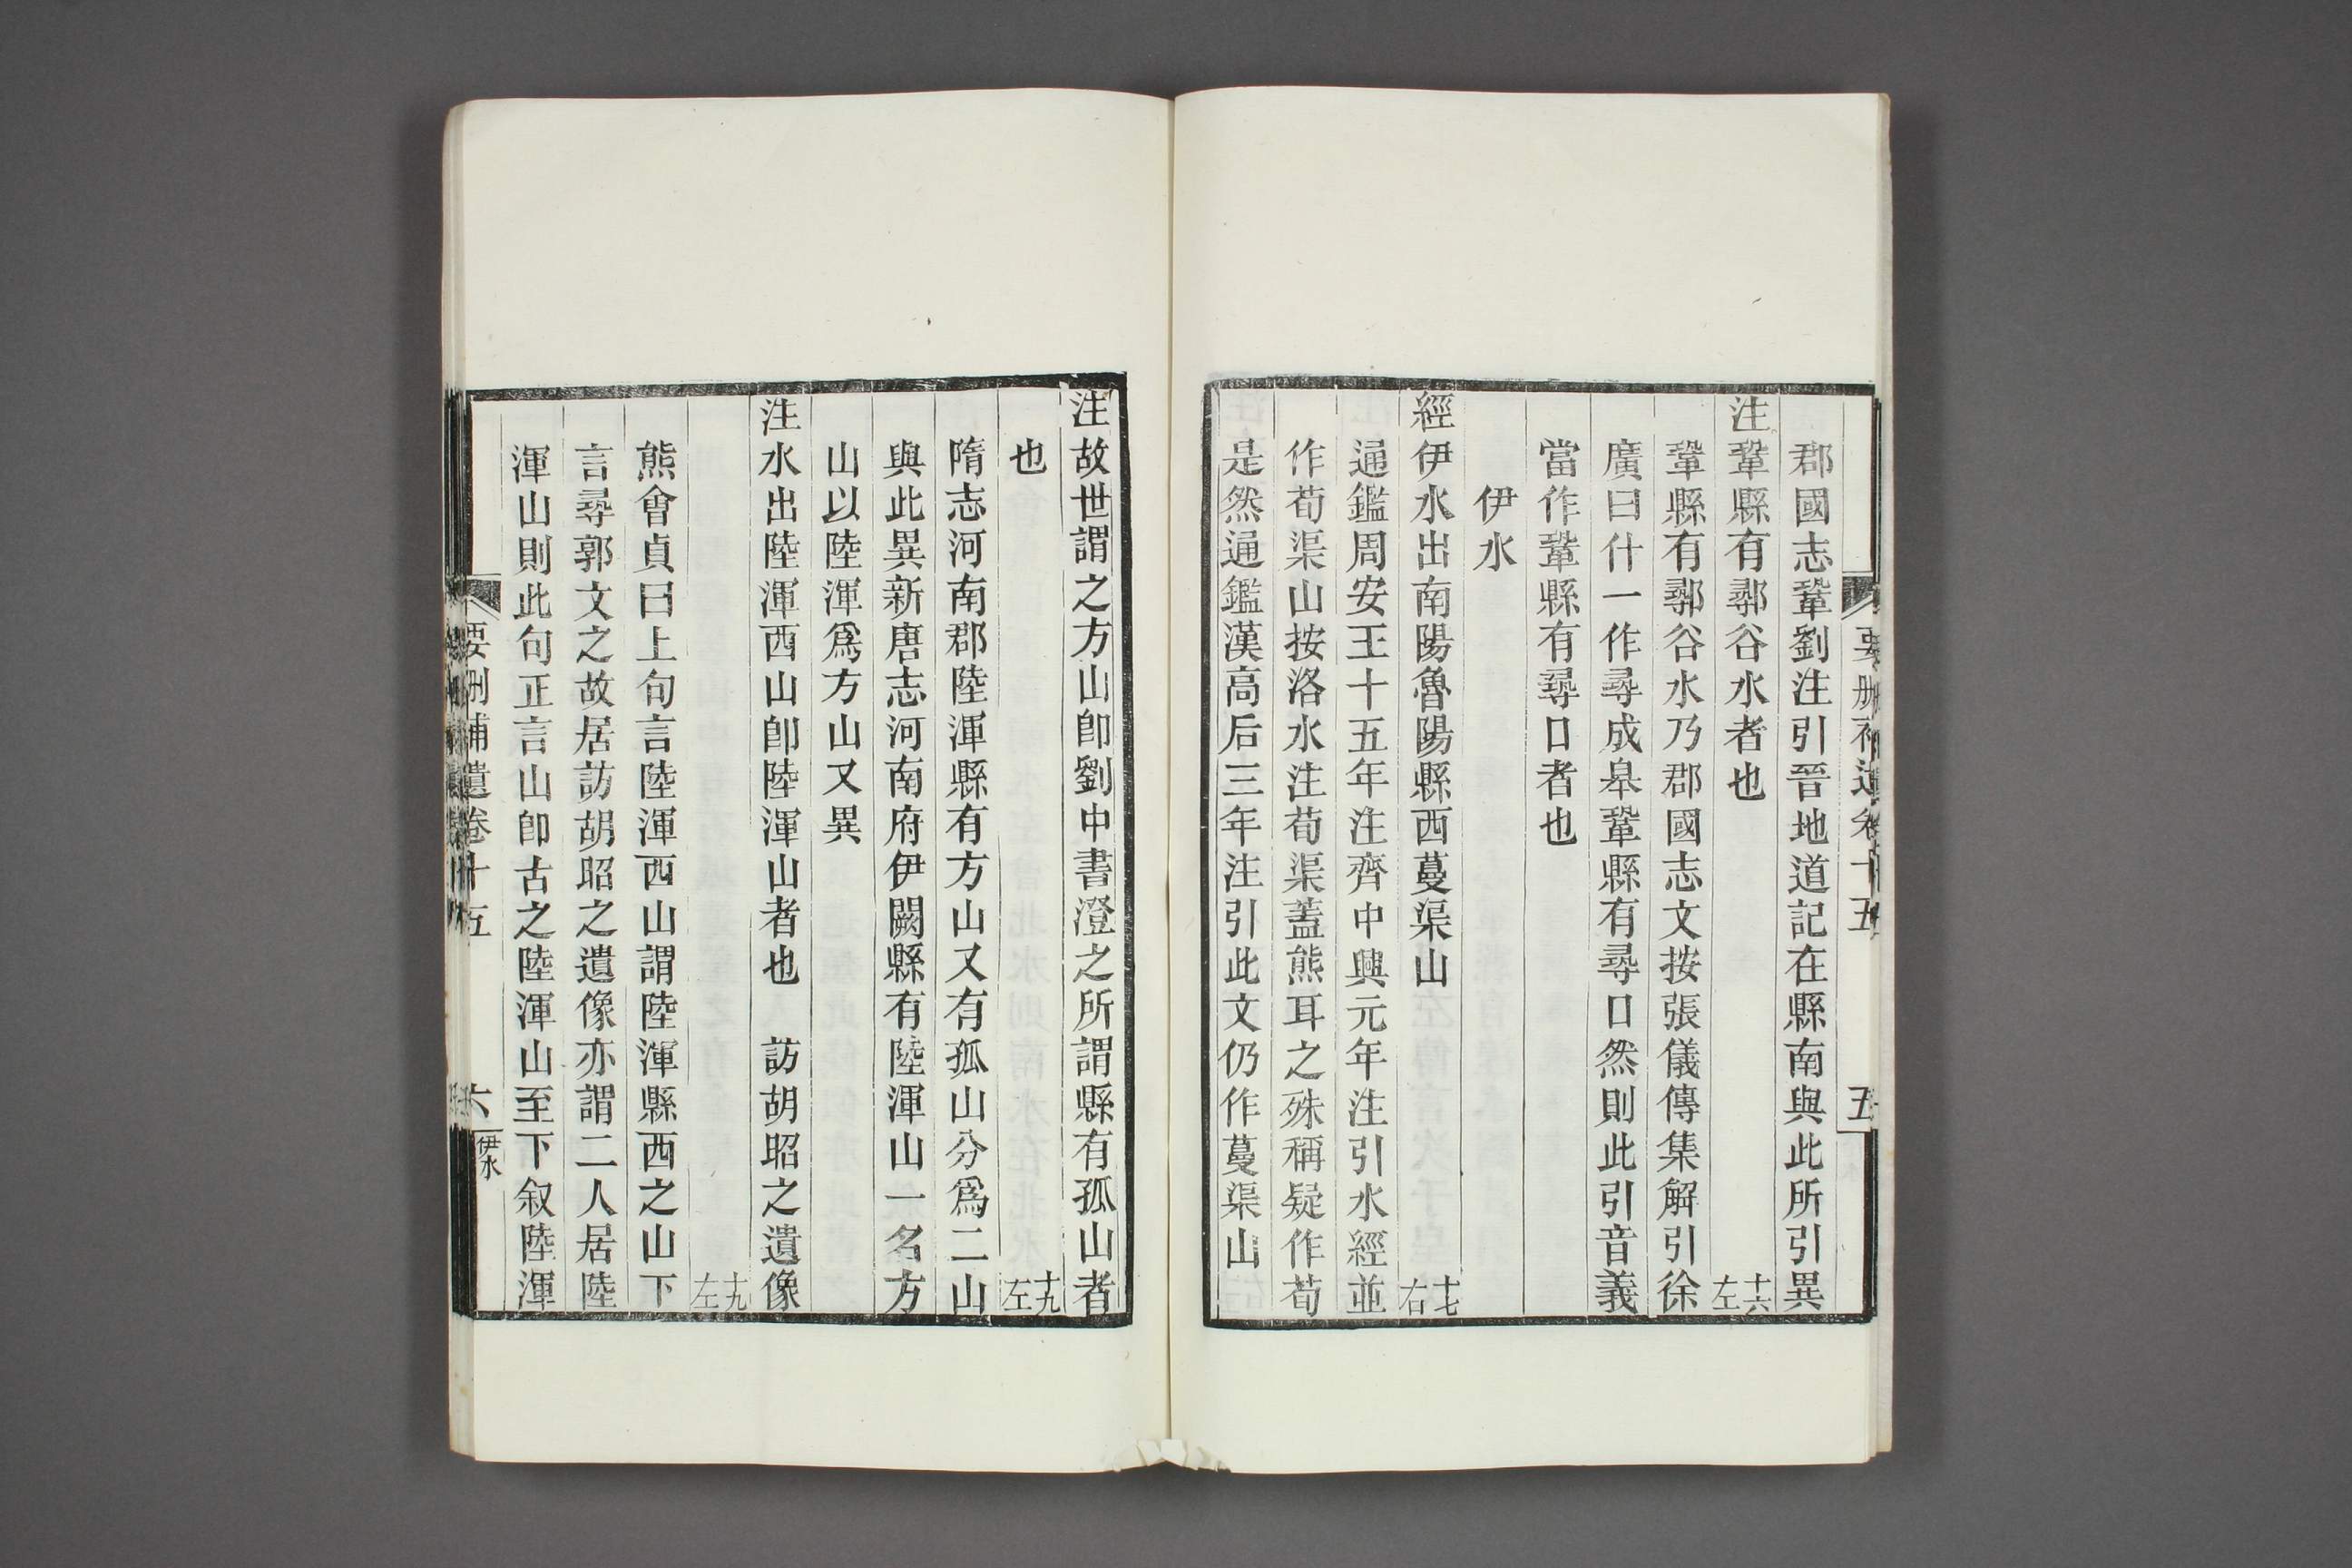 郡國志鞏劉注引晉地道記在縣南與此所引異
注鞏縣有鄩谷水者也 十六左
鞏縣有鄩谷水乃郡國志文按張儀傳集解引徐
廣曰什一作尋成皋鞏縣有尋口然則此引音義
當作鞏縣有尋口者也
伊水
經伊水出南陽魯陽縣西蔓渠山 十七右
通鑑周安王十五年注齊中興元年注引水經並
作荀渠山按洛水注荀渠蓋熊耳之殊稱疑作荀
是然通鑑漢高后三年注引此文仍作蔓渠山
要删補遺卷十五 五
注故世謂之方山即劉中書澄之所謂縣有孤山者
也 十九左
隋志河南郡陸渾縣有方山又有孤山分爲二山
與此異新唐志河南府伊闕縣有陸渾山一名方
山以陸渾爲方山又異
注水出陸渾西山即陸渾山者也 訪胡昭之遺像
十九左
熊會貞曰上句言陸渾西山謂陸渾縣西之山下
言尋郭文之故居訪胡昭之遺像亦謂二人居陸
渾山則此句正言山即古之陸渾山至下叙陸渾
要删補遺卷十五 六 伊水